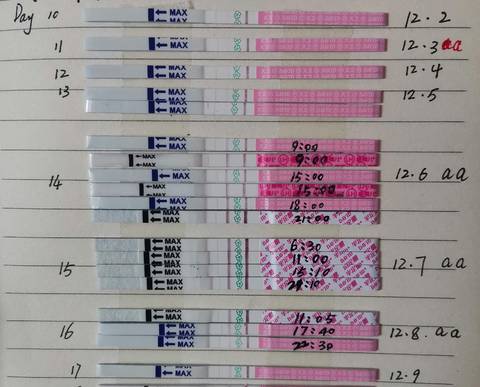 Day 10 MAX 12.2
11 MAX 12.3 aa
12 MAX 12.4
13 MAX 12.5
MAX
MAX 9:00
MAX 9:00
14 MAX 15:00 12.6 aa
MAX 15:00
MAX 18:00
MAX 21:00
MAX 6:30
MAX 11:00
15 MAX 15:10 12.7 aa
MAX 21:10
MAX 11:05
16 MAX 17:40 12.8. aa
MAX 22:30
17 MAX 12.9